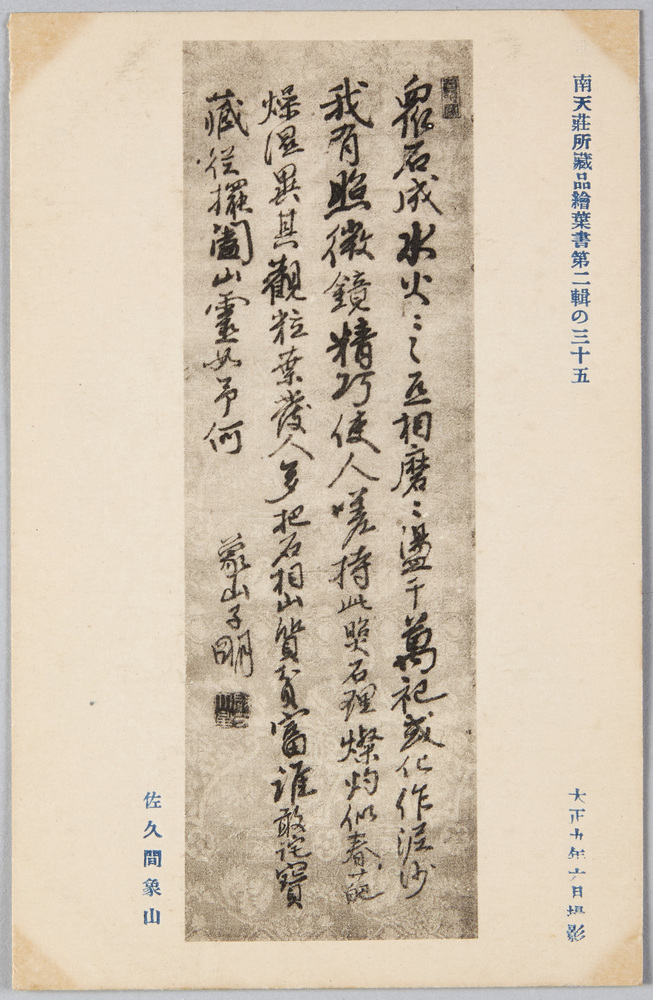 南天莊所藏品繪葉書第二輯の三十五
大正九年六月撮影
衆石成水火〻之互相磨〻盪千萬祀或化作泥沙
我有照微鏡精巧使人嗟持此照石理燦灼似春葩
燥湿異其觀粒葉發人多把石相山質貧富誰敢詫寶
藏從擢闔山靈如予何
象山子明
佐久間象山